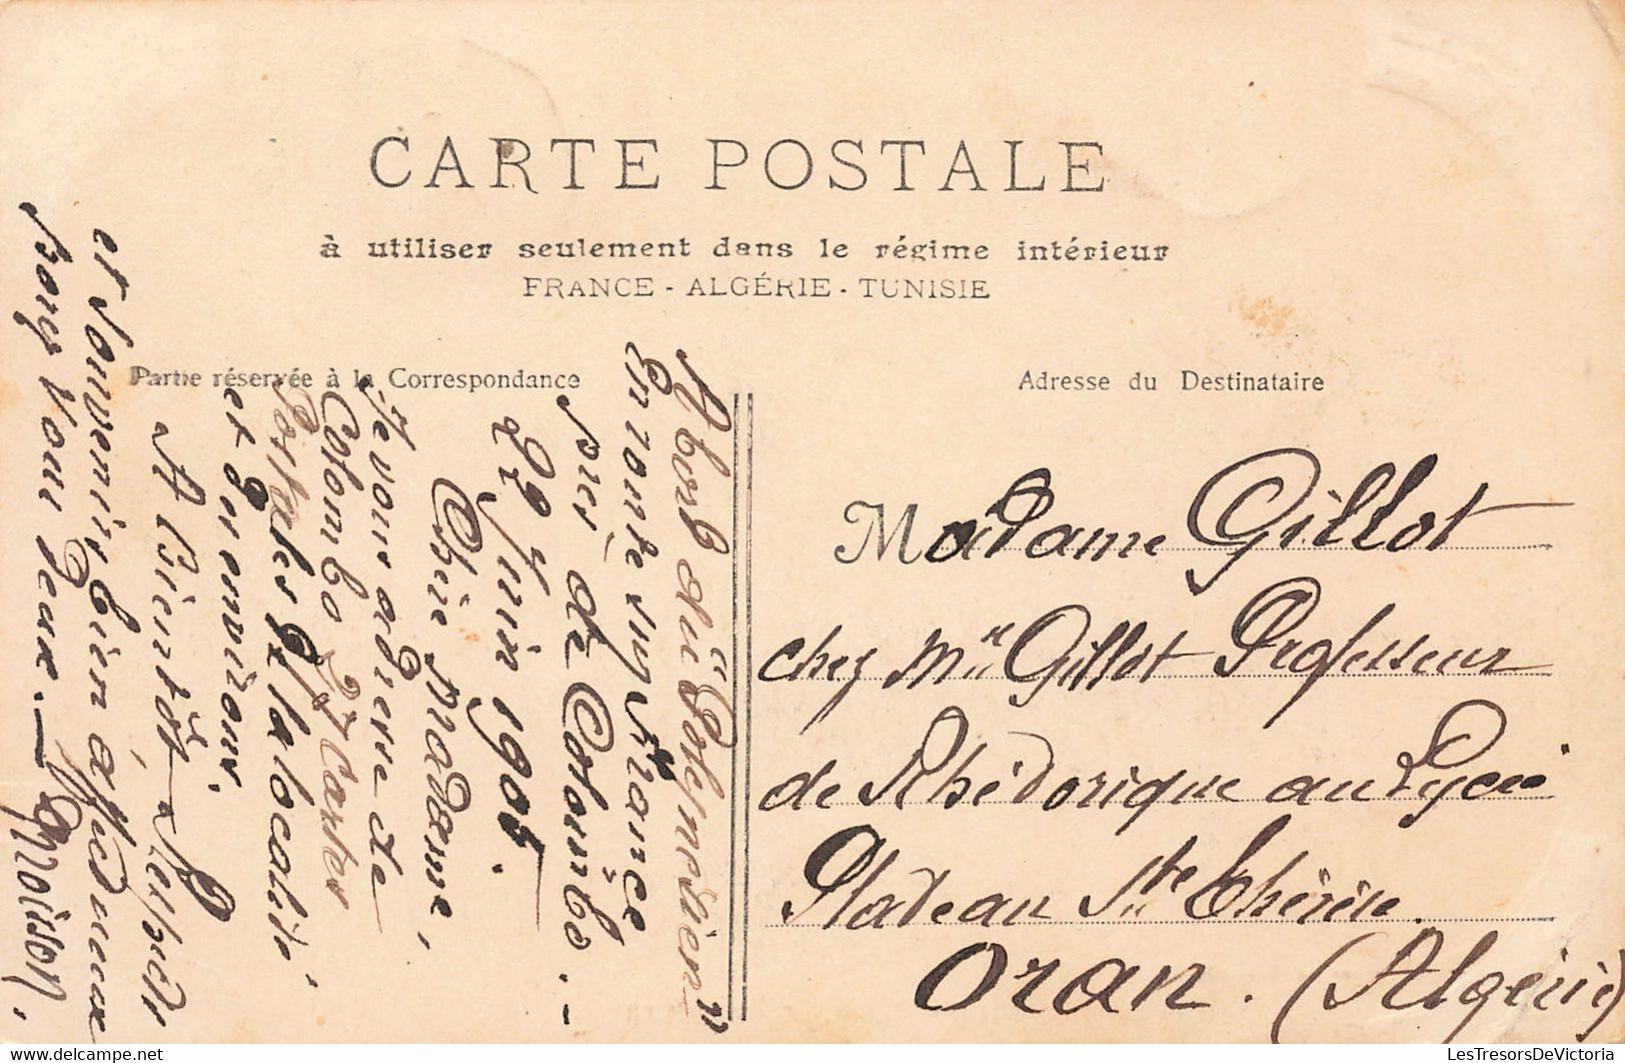 CARTE POSTALE
à utiliser seulement dans le régime intérieur
FRANCE - ALGÉRIE - TUNISIE
Partie réservée à la Correspondance
Adresse du Destinataire
A bord du "Polynésien"
En route sur France
près de Colombo. -
29 Juin 1905.
Chère Madame,
Je vous adresse de
Colombo 27 cartes
Postales de la localité
et environs.
A Bientôt
et Souvenir bien affectueux
pour Vous deux. -
Madame Gillot
chez Mr Gillot Professeur
de Rhétorique au Lycée
Plateau Ste Thérèse.
Oran. (Algérie)
LesTresorsDeVictoria
© delcampe.net